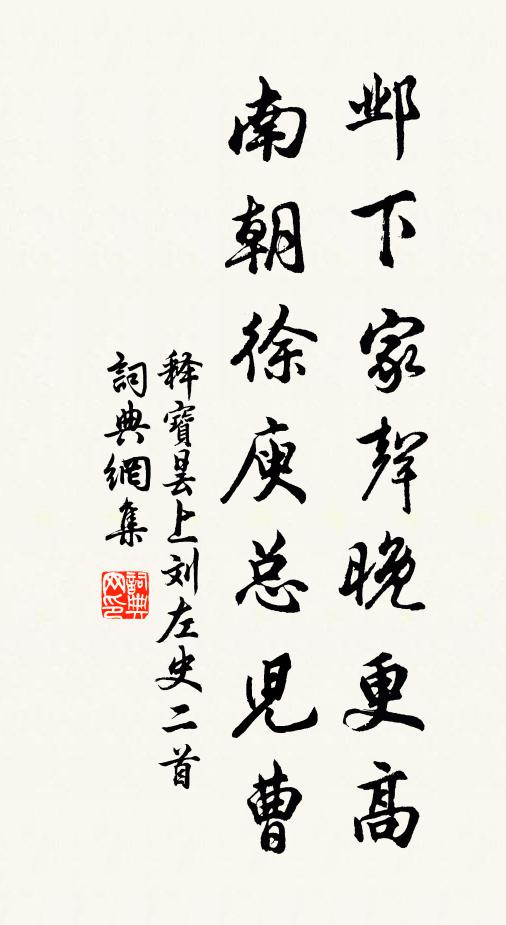 邺下家聲晚更高
南朝徐庾总児曹
释寶曇上刘左史二首
詞典網集
詞典網印